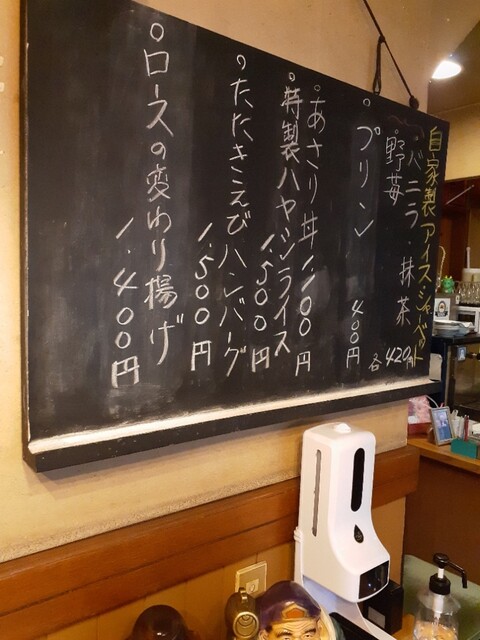 自家製アイス・シャーベット
・バニラ・抹茶
・野苺 各420円
○プリン 400円
○あさり丼 1,100円
○特製ハヤシライス
1,500円
○たたきえびハンバーグ
1,500円
○ロースの変わり揚げ
1,400円